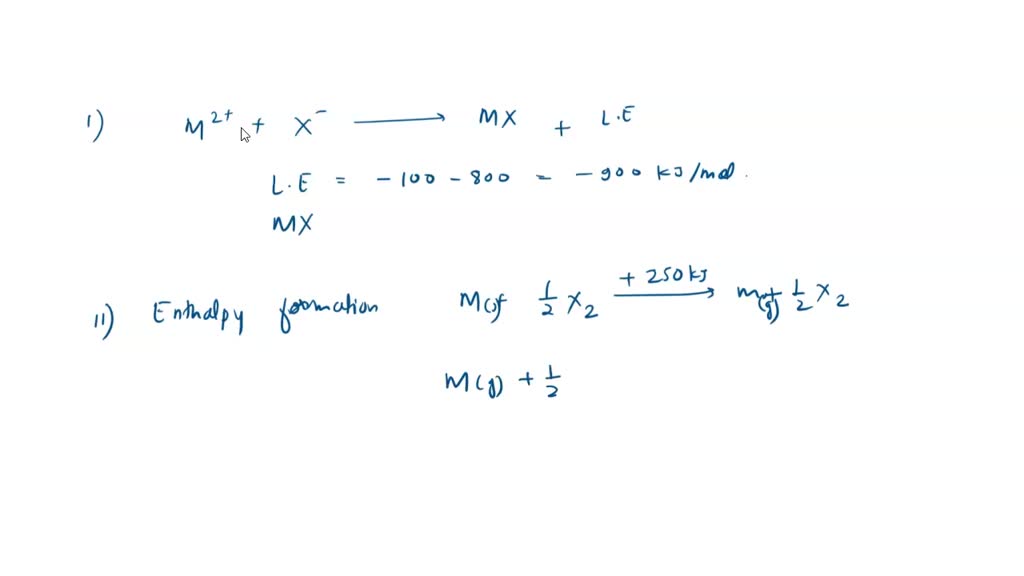 1) M²⁺ + X⁻ ⟶ MX + L.E
L.E = -100 - 800 = -900 kJ/mol.
MX
11) Enthalpy formation M(s) ½ X₂ + 250 kJ ⟶ M(g) + ½ X₂
M(g) + ½